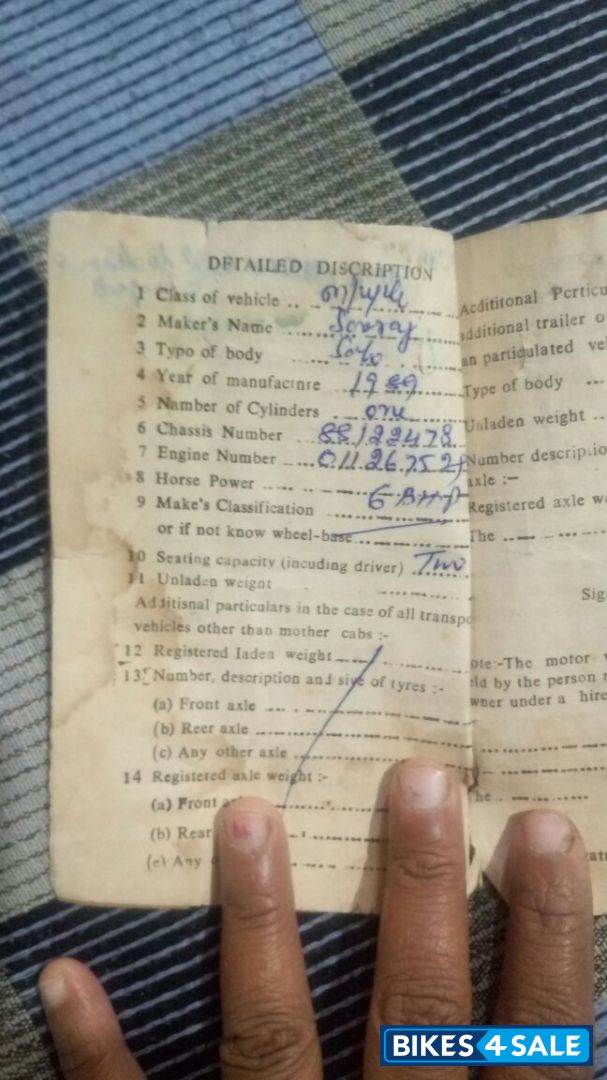 DETAILED DISCRIPTION
1 Class of vehicle .. m/cycle
2 Maker's Name
3 Typo of body Solo
4 Year of manufacture 1989
5 Namber of Cylinders one
6 Chassis Number 88122478
7 Engine Number 01126752
8 Horse Power 6 BHP
9 Make's Classification
or if not know wheel-base
10 Seating capacity (incuding driver) Two
11 Unladen weignt
Additisnal particulars in the case of all transpo
vehicles other than mother cabs :-
12 Registered Iaden weight
13 Number, description and size of tyres :-
(a) Front axle
(b) Reer axle
(c) Any other axle
14 Registered axle weight :-
(a) Front
(b) Rear
(e) Any
Acditional Perticu
additional trailer o
an particulated veh
Type of body
Unladen weight ..
Number descrip.io
axle :-
Registered axle we
The
Sig
ote-The motor v
eld by the person r
wner under a hire
he
BIKES4SALE